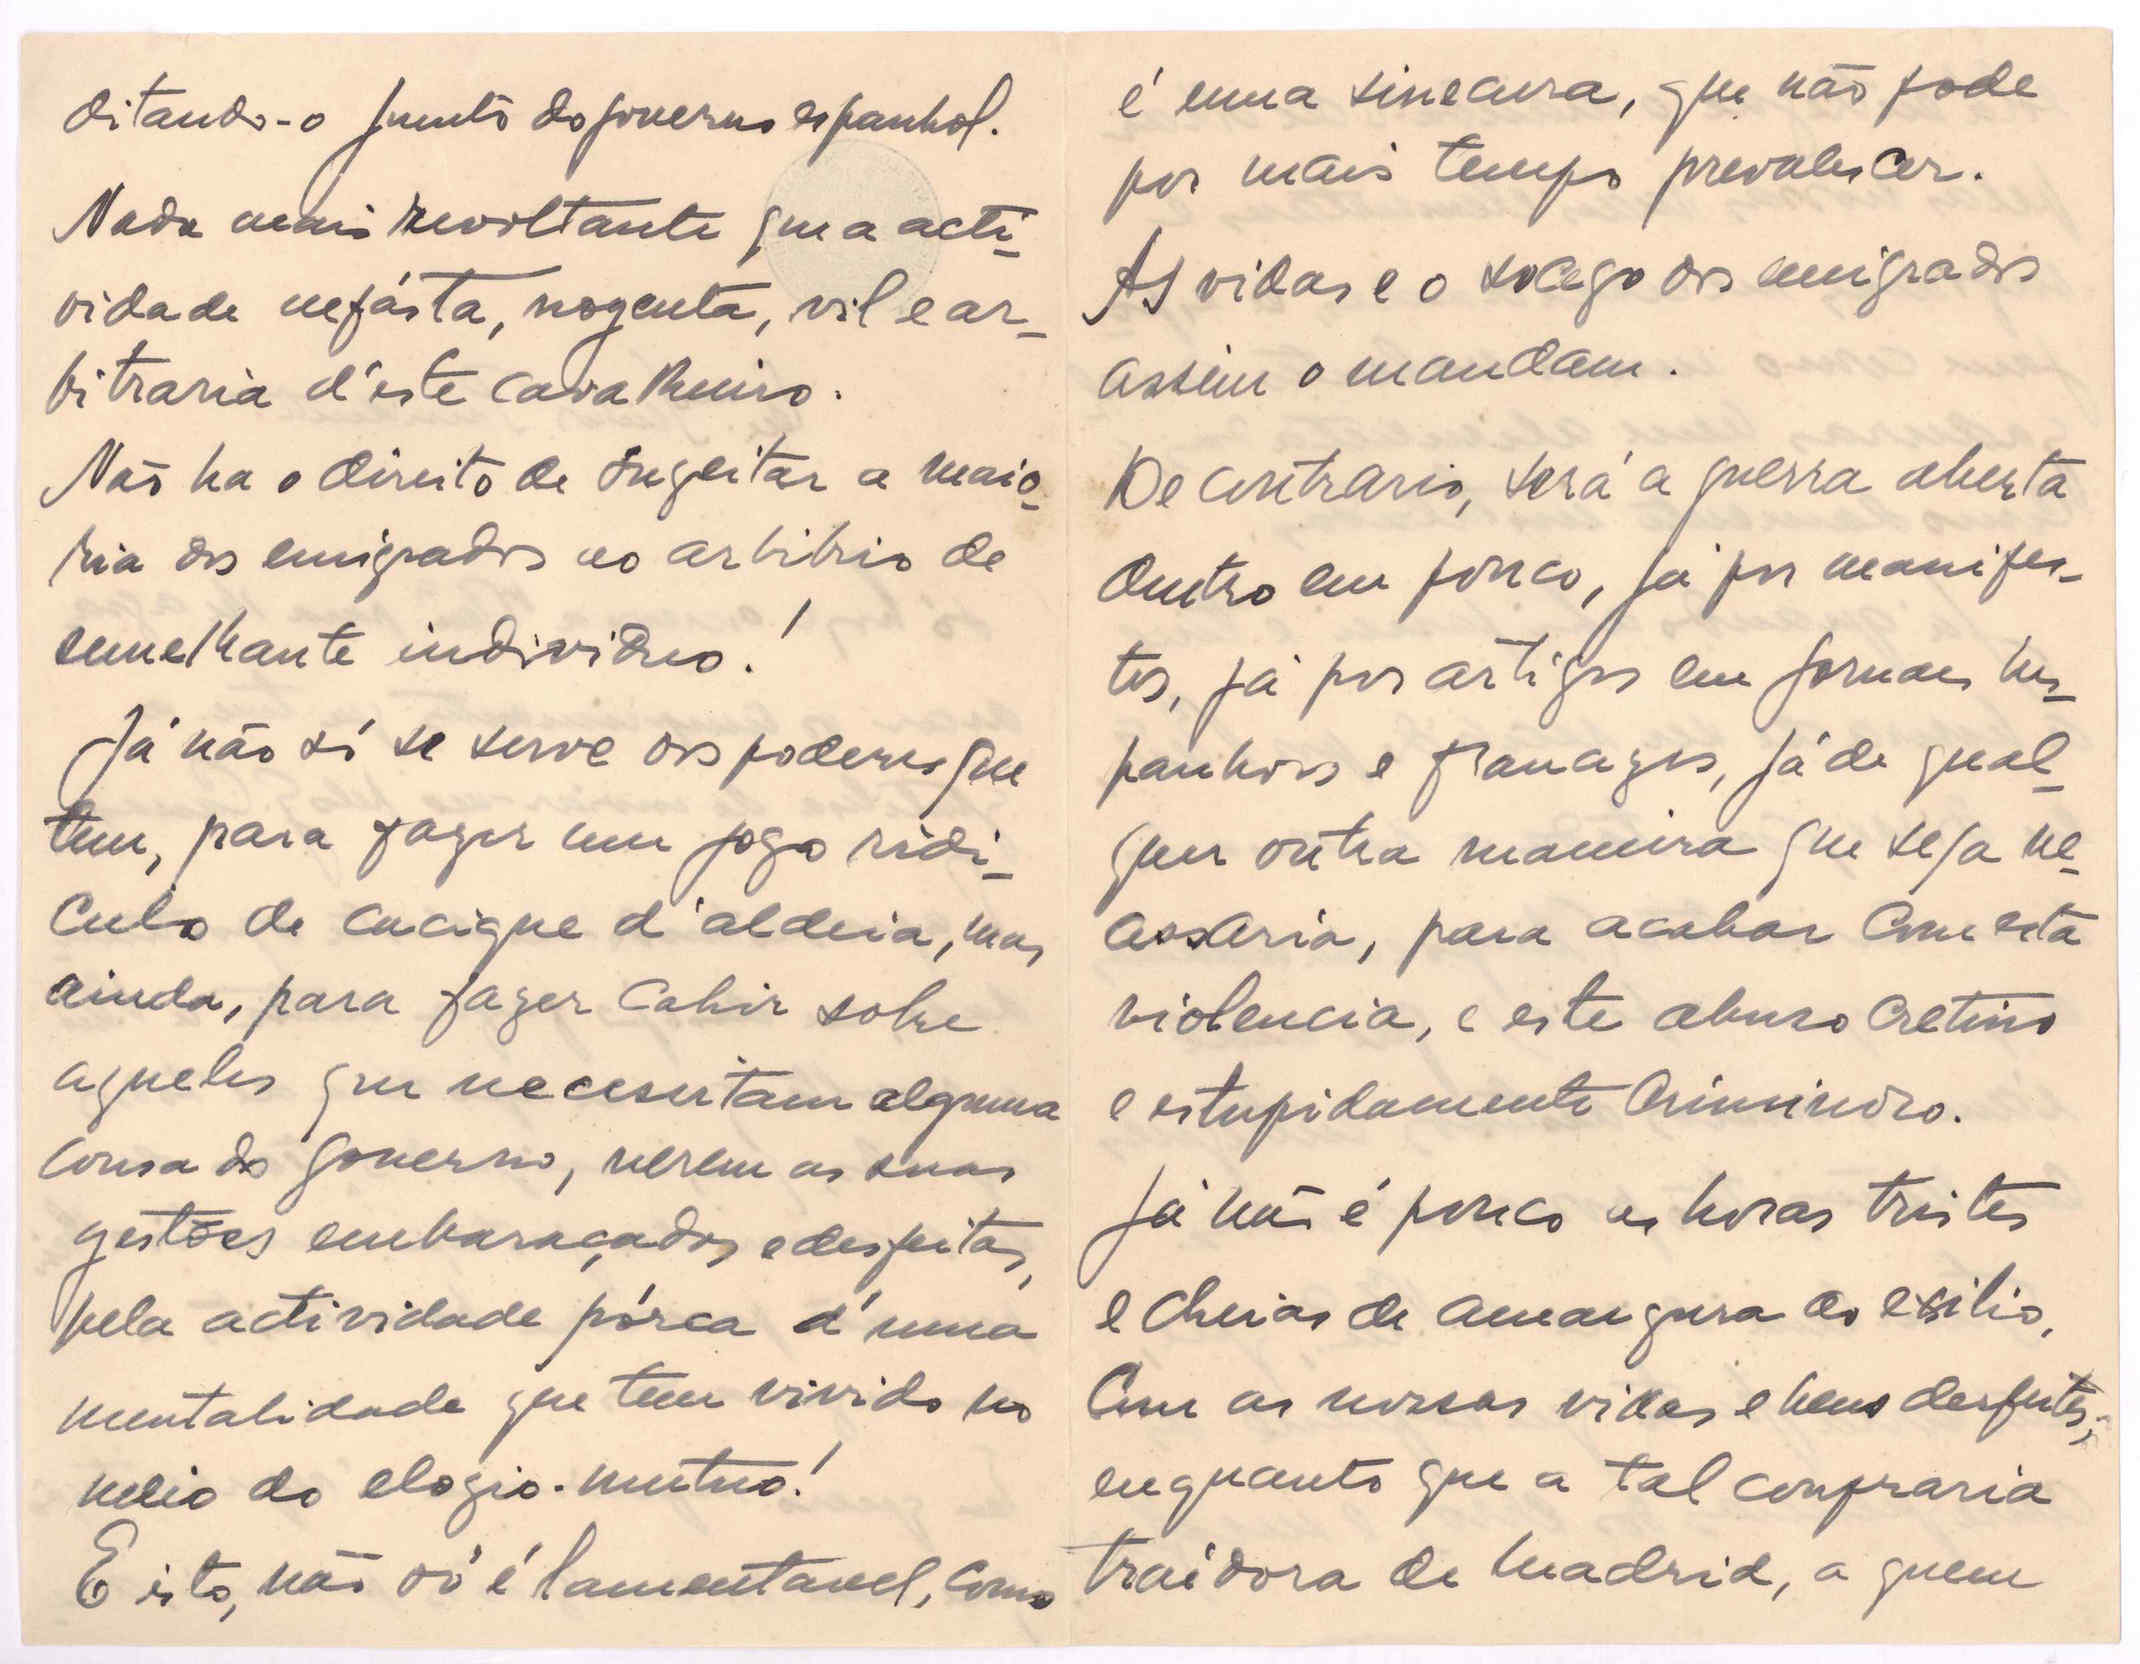 ditando-o junto do governo espanhol.
Nada mais revoltante que a acti-
vidade nefásta, nogenta, vil e ar-
bitraria d'este cavalheiro.
Não ha o direito de sugeitar a maio-
ria dos emigrados ao arbitrio de
semelhante individuo!
Já não só se serve dos poderes que
tem, para fazer um jogo ridi-
culo de cacique d'aldeia, mas
ainda, para fazer cahir sobre
aqueles que necesitam alguma
cousa do Governo, verem as suas
gestões embaraçadas e desfeitas,
pela actividade pórca d'uma
mentalidade que tem vivido no
meio do elogio-mutuo!
E isto, não só é lamentavel, como
é uma sinecura, que não pode
por mais tempo prevalescer.
As vidas e o socego dos emigrados
assim o mandam.
De contrario, será a guerra aberta
dentro em pouco, já por manifes-
tos, já por artigos em jornaes hes-
panhoes e francezes, já de qual-
quer outra maneira que seja ne-
cessaria, para acabar com esta
violencia, e este abuso cretino
e estupidamente criminoso.
Já não é pouco as horas tristes
e cheias de amargura do exilio,
com as nossas vidas e bens desfeitos,
enquanto que a tal confraria
traidora de Madrid, a quem